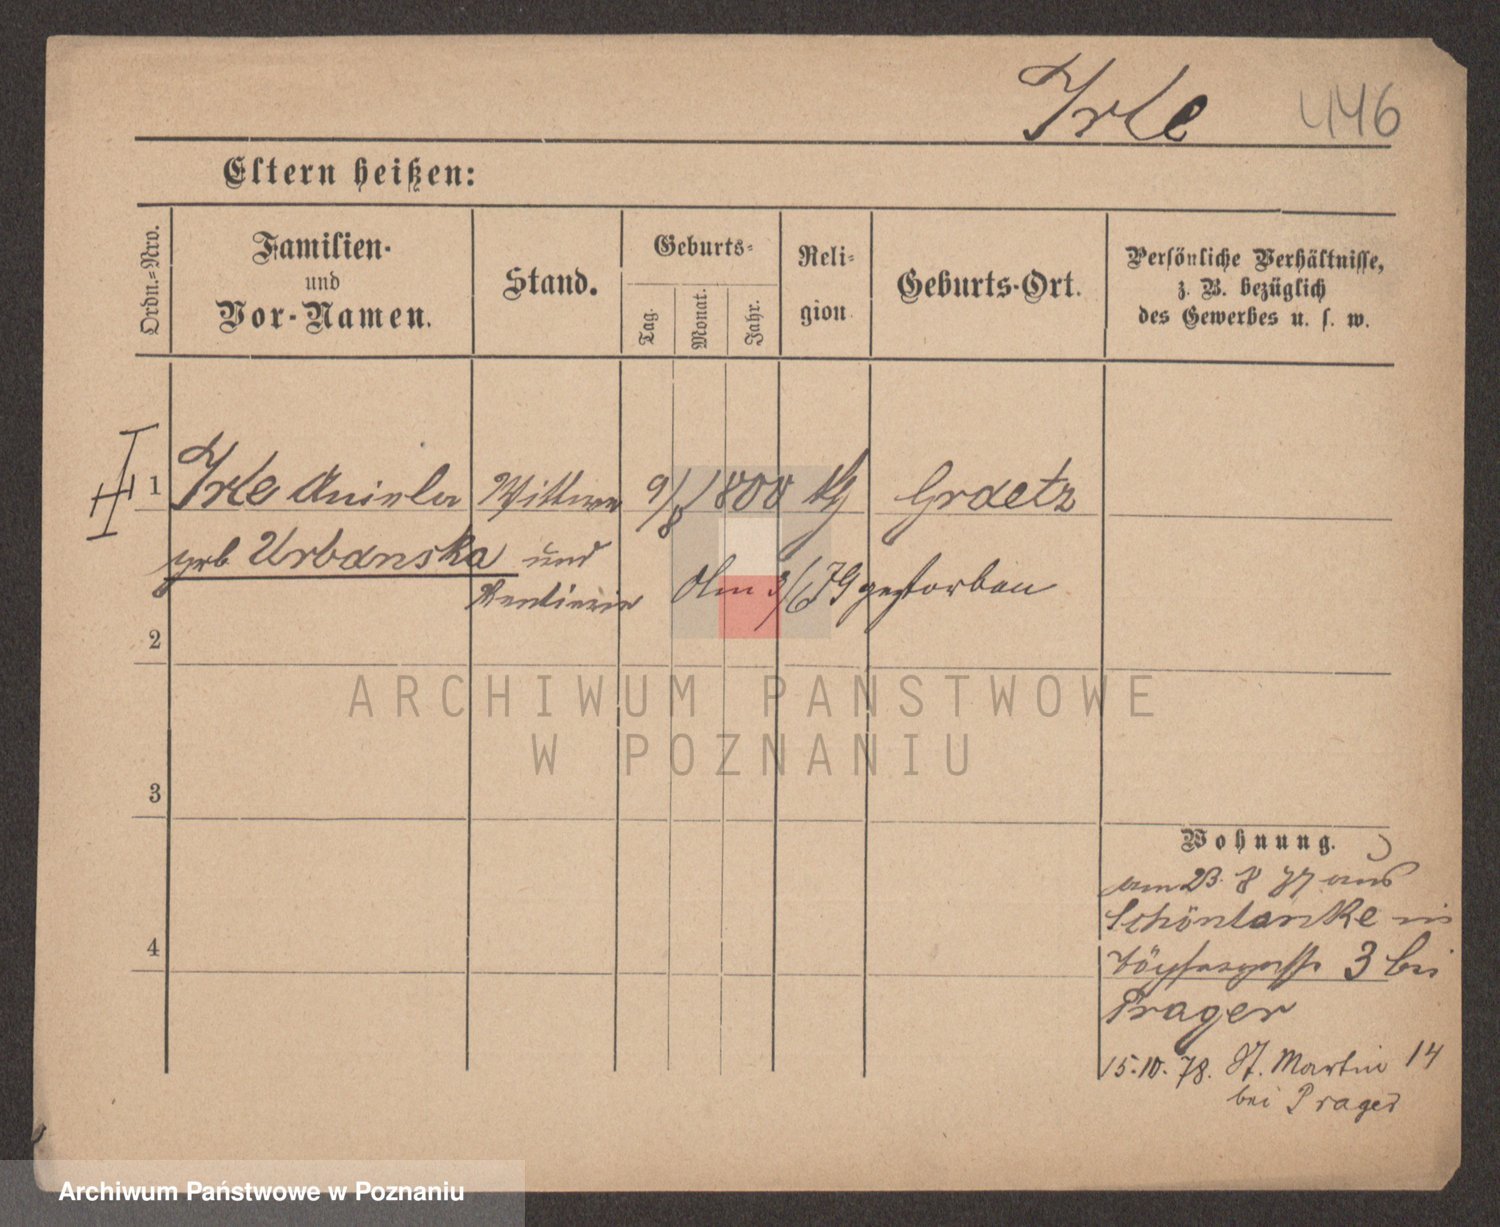 Irle 446
Eltern heißen:
Ordn.=Nro.
Familien-
und
Vor-Namen.
Stand.
Geburts=
Tag.
Monat.
Jahr.
Reli=
gion.
Geburts-Ort.
Persönliche Verhältnisse,
z. B. bezüglich
des Gewerbes u. s. w.
1 Irle Aniela Wittwe 9/8 1800 Graetz
geb Urbanska und
Rentierin Am 3/6 79 gestorben
2
ARCHIWUM PAŃSTWOWE
W POZNANIU
3
Wohnung.
am 23. 8 77 aus
Schönlanke in
3 bei
4
Prager
15.10.78. St. Martin 14
bei Prager
Archiwum Państwowe w Poznaniu